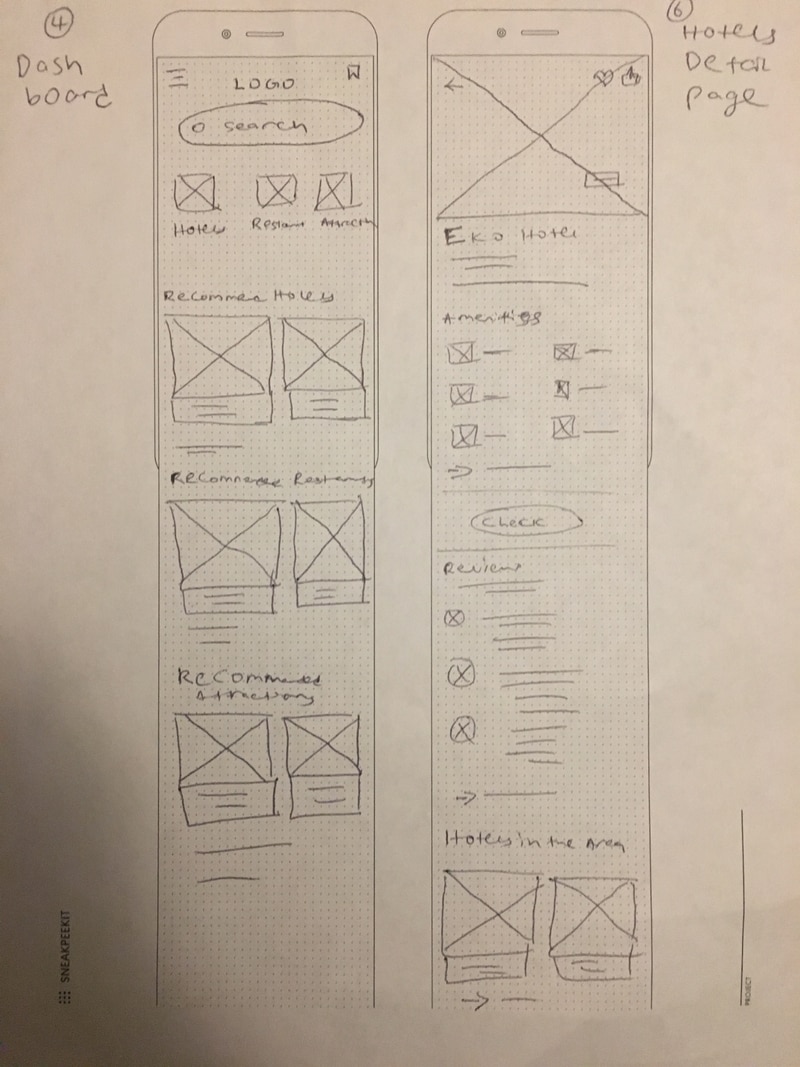 4
Dash
board
LOGO
search
Hotels
Restaur
Attractn
Recommen Hotels
Recommended
Recommended
Attractions
6
Hotels
Detail
page
Eko Hotel
Amenities
Check
Reviews
Hotels in the Area
SNEAKPEEKIT
PROJECT